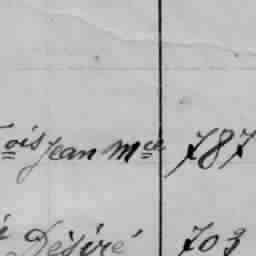 ois Jean Mce 787
Désiré 703